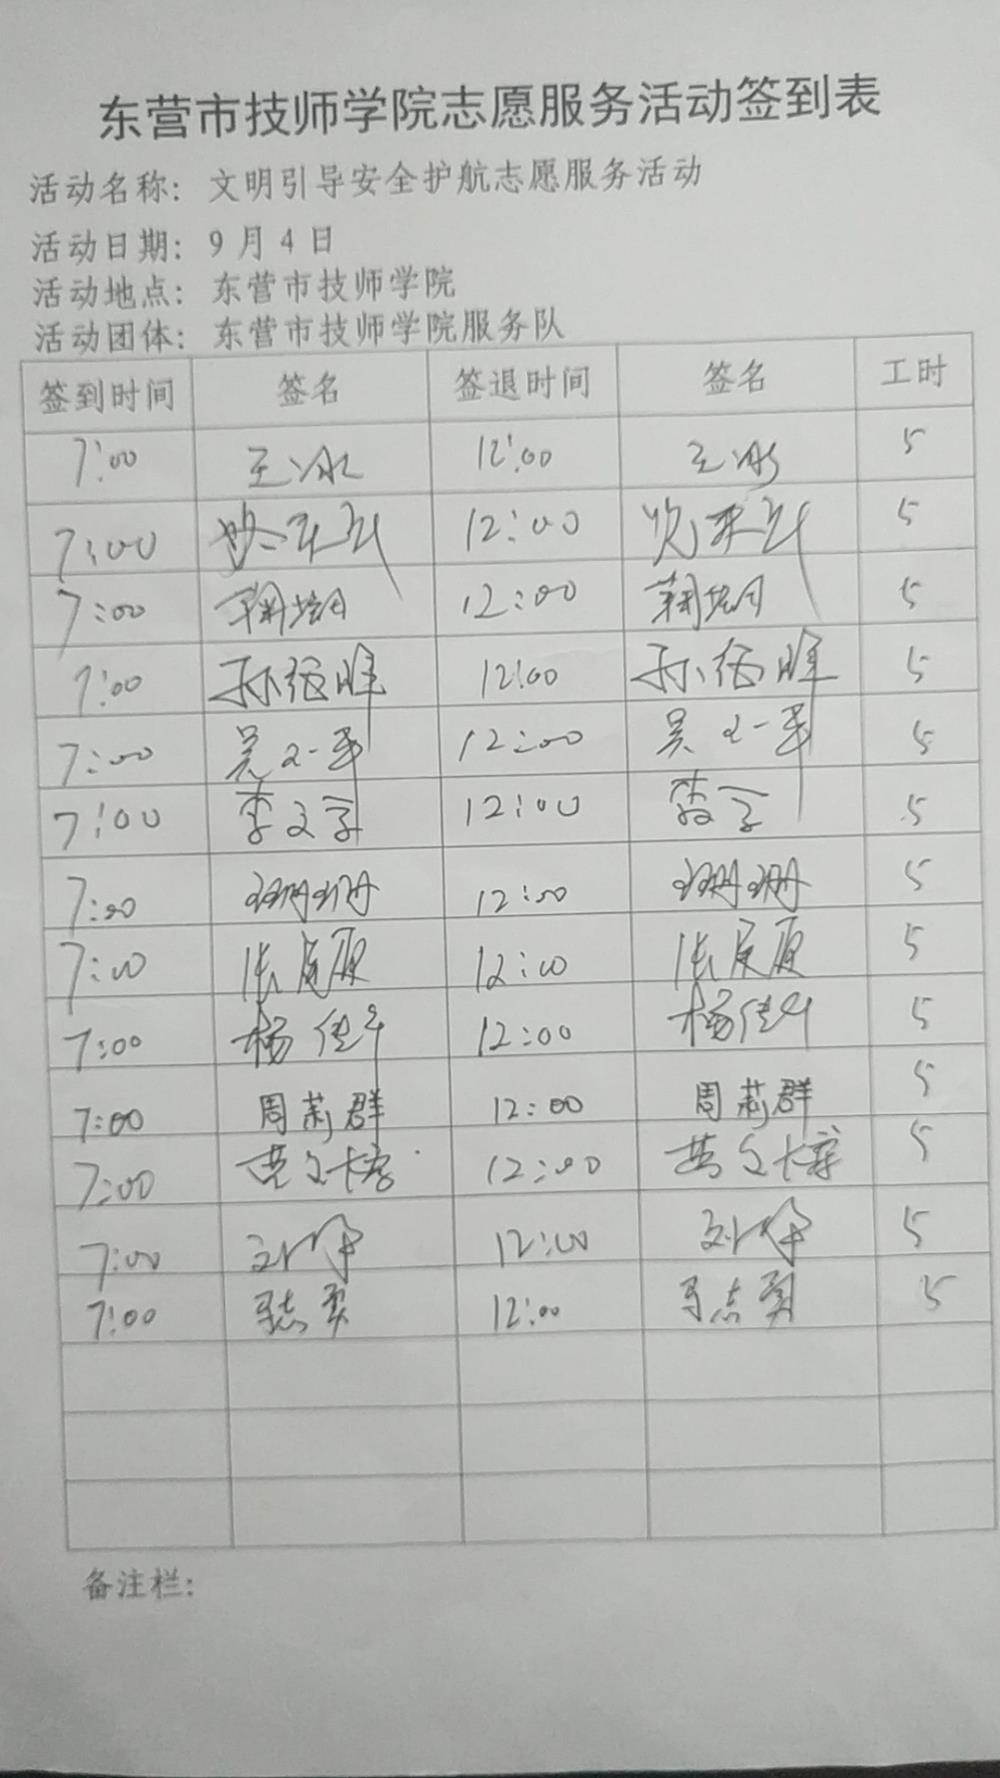 东营市技师学院志愿服务活动签到表
活动名称：文明引导安全护航志愿服务活动
活动日期：9月4日
活动地点：东营市技师学院
活动团体：东营市技师学院服务队
签到时间 签名 签退时间 签名 工时
7:00 王冰 12:00 王冰 5
7:00 12:00 5
7:00 12:00 5
7:00 孙 12:00 孙 5
7:00 吴 12:00 吴 5
7:00 李文字 12:00 5
7:00 珊珊 12:00 珊珊 5
7:00 张 原 12:00 张 原 5
7:00 杨佳 12:00 杨佳 5
7:00 周莉群 12:00 周莉群 5
7:00 12:00 5
7:00 刘 12:00 刘 5
7:00 马志勇 12:00 马志勇 5
备注栏：